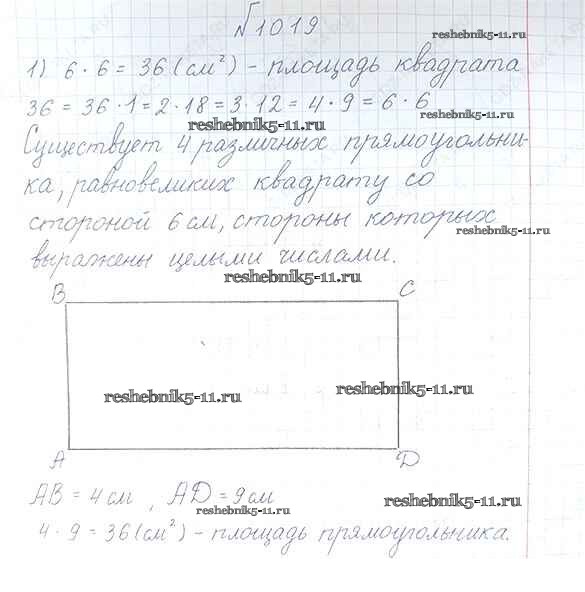 №1019
reshebnik5-11.ru
1) 6 · 6 = 36 (см²) - площадь квадрата
36 = 36 · 1 = 2 · 18 = 3 · 12 = 4 · 9 = 6 · 6
reshebnik5-11.ru
Существует 4 различных прямоугольни-
ка, равновеликих квадрату со
стороной 6 см, стороны которых
reshebnik5-11.ru
выражены целыми числами.
reshebnik5-11.ru
B C
reshebnik5-11.ru
reshebnik5-11.ru
A D
AB = 4 см, AD = 9 см
reshebnik5-11.ru
reshebnik5-11.ru
4 · 9 = 36 (см²) - площадь прямоугольника.